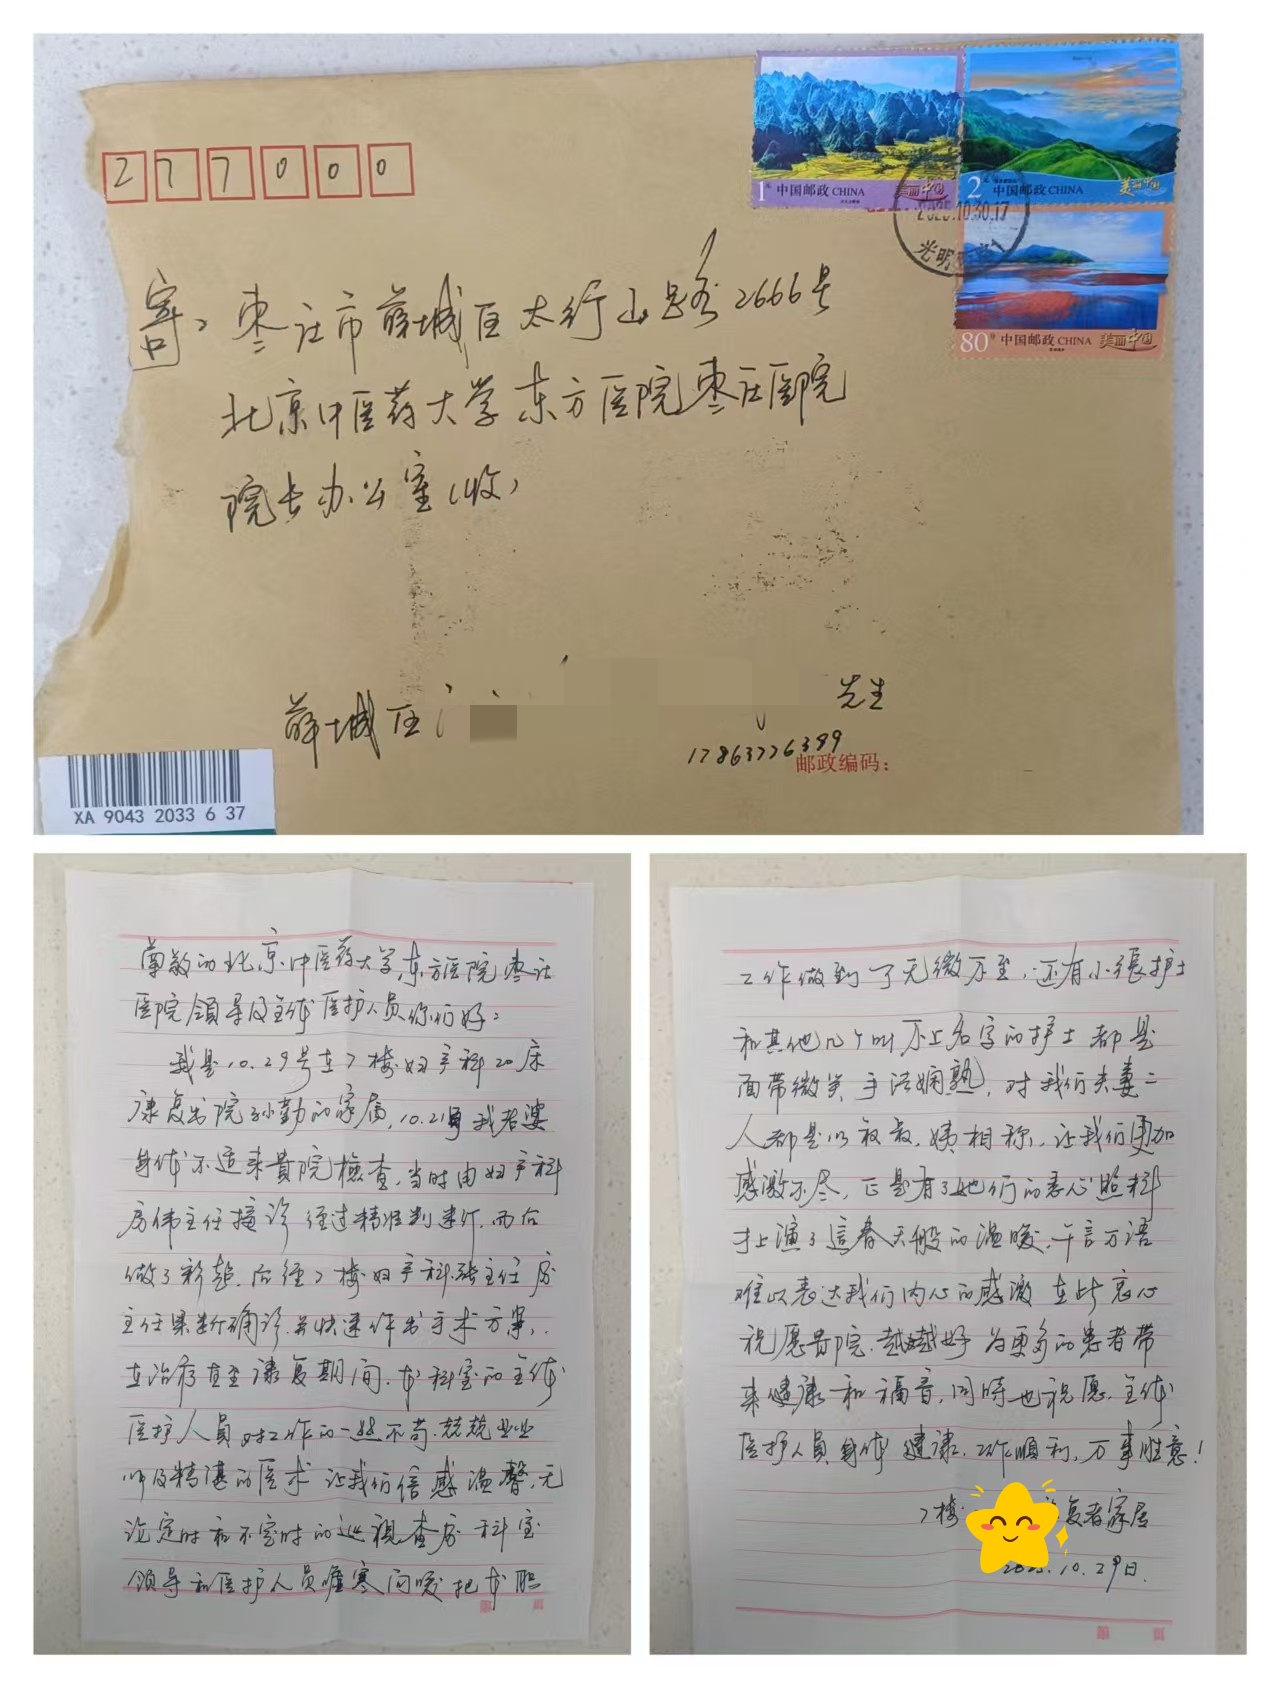 277000
1元 中国邮政 CHINA 美丽中国
2元 中国邮政 CHINA 美丽中国
2025.10.30.17
光明
80分 中国邮政 CHINA 美丽中国
寄：枣庄市薛城区太行山路2666号
北京中医药大学东方医院枣庄医院
院长办公室（收）
薛城区
先生
17863776399
邮政编码：
XA 9043 2033 6 37
尊敬的北京中医药大学东方医院枣庄
医院领导及全体医护人员你们好：
我是10.29号在7楼妇产科20床
康复出院孙勤的家属，10.21号我老婆
身体不适来贵院检查，当时由妇产科
房伟主任接诊 经过精准判断，而后
做了彩超，后经7楼妇产科张主任房
主任果断确诊，并快速作出手术方案，
在治疗直至康复期间，本科室的全体
医护人员对工作的一丝不苟，兢兢业业
以及精湛的医术 让我们倍感温馨，无
论定时和不定时的巡视查房 科室
领导和医护人员嘘寒问暖把本职
工作做到了无微不至，还有小張护士
和其他几个叫不上名字的护士都是
面带微笑 手法娴熟，对我们夫妻二
人都是以叔叔，姨相称，让我们更加
感激不尽，正是有了她们的悉心照料
才上演了這春天般的温暖，千言万语
难以表达我们内心的感激 在此衷心
祝愿贵院，越越好 为更多的患者带
来健康和福音，同時也祝愿，全体
医护人员身体健康，工作順利，万事胜意！
7楼 复者家居
10.29日.
第 页
第 页